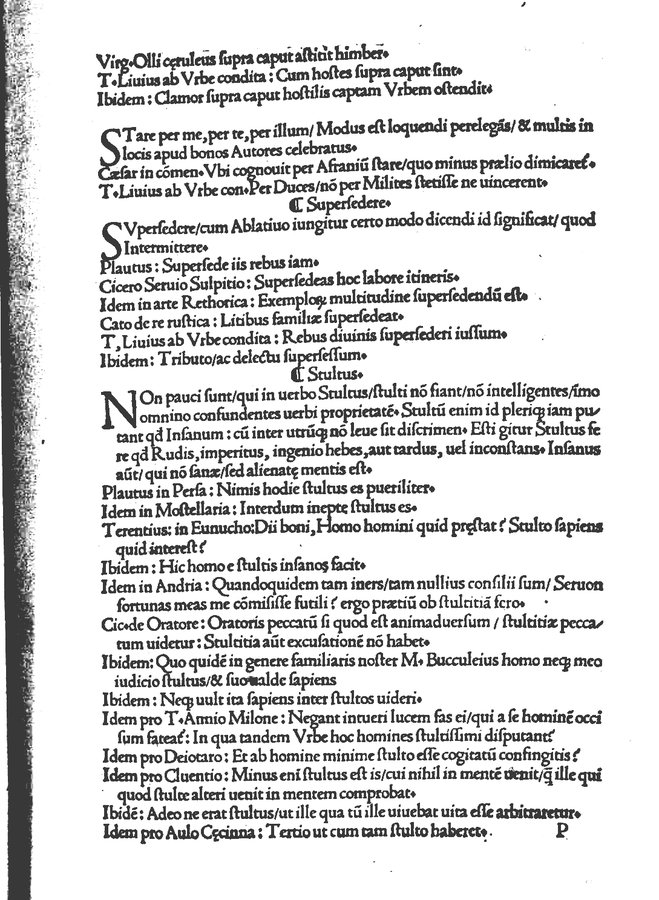 Virg. Olli cęruleus supra caput astitit himber.
T. Liuius ab Vrbe condita : Cum hostes supra caput sint.
Ibidem : Clamor supra caput hostilis captam Vrbem ostendit.
STare per me, per te, per illum/ Modus est loquendi perelegãs/ & multis in
locis apud bonos Autores celebratus.
Cæsar in cõmen. Vbi cognouit per Afraniũ stare/quo minus prælio dimicaret̃.
T. Liuius ab Vrbe con. Per Duces/nõ per Milites stetisse ne uincerent.
⸿ Supersedere.
SVpersedere/cum Ablatiuo iungitur certo modo dicendi id significat/ quod
Intermittere.
Plautus : Supersede iis rebus iam.
Cicero Seruio Sulpitio : Supersedeas hoc labore itineris.
Idem in arte Rethorica : Exemploꝝ multitudine supersedendũ est.
Cato de re rustica : Litibus familiæ supersedeat.
T, Liuius ab Vrbe condita : Rebus diuinis supersederi iussum.
Ibidem : Tributo/ac delectu supersessum.
⸿ Stultus.
NOn pauci sunt/qui in uerbo Stultus/stulti nõ fiant/nõ intelligentes/ĩmo
omnino confundentes uerbi proprietatẽ. Stultũ enim id pleriqꝫ iam pu/
tant qd Insanum : cũ inter utrũqꝫ nõ leue sit discrimen. Esti gitur Stultus fe
re qd Rudis, imperitus, ingenio hebes, aut tardus, uel inconstans. Insanus
aũt/ qui nõ sanæ/sed alienatę mentis est.
Plautus in Persa : Nimis hodie stultus es pueriliter.
Idem in Mostellaria : Interdum inepte stultus es.
Terentius: in Eunucho: Dii boni, Homo homini quid pręstat? Stulto sapiens
quid interest?
Ibidem : Hic homo e stultis insanos facit.
Idem in Andria : Quandoquidem tam iners/tam nullius consilii sum/ Seruon
fortunas meas me cõmisisse futili? ergo prætiũ ob stultitiã fero.
Cic. de Oratore : Oratoris peccatũ si quod est animaduersum / stultitiæ pecca/
tum uidetur : Stultitia aũt excusationẽ nõ habet.
Ibidem: Quo quidẽ in genere familiaris noster M. Bucculeius homo neqꝫ meo
iudicio stultus/& suo ualde sapiens
Ibidem : Neqꝫ uult ita sapiens inter stultos uideri.
Idem pro T. Annio Milone : Negant intueri lucem fas ei/qui a se hominẽ occi
sum fateat̃ : In qua tandem Vrbe hoc homines stultissimi disputant?
Idem pro Deiotaro : Et ab homine minime stulto esse cogitatũ confingitis?
Idem pro Cluentio : Minus enĩ stultus est is/cui nihil in mentẽ uenit/q̃ ille qui
quod stulte alteri uenit in mentem comprobat.
Ibidẽ : Adeo ne erat stultus/ut ille qua tũ ille uiuebat uita esse arbitraretur.
Idem pro Aulo Cęcinna : Tertio ut cum tam stulto haberet. P